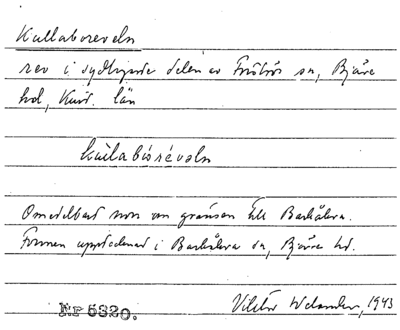 Kullaboreveln
rev i sydligaste delen av Förslövs sn, Bjäre
hd, Krist. län
kùllabòsréveln
Omedelbart norr om gränsen till Barkåkra.
Formen upptecknad i Barkåkra sn, Bjäre hd.
Nr 5320. Viktor Welander, 1943